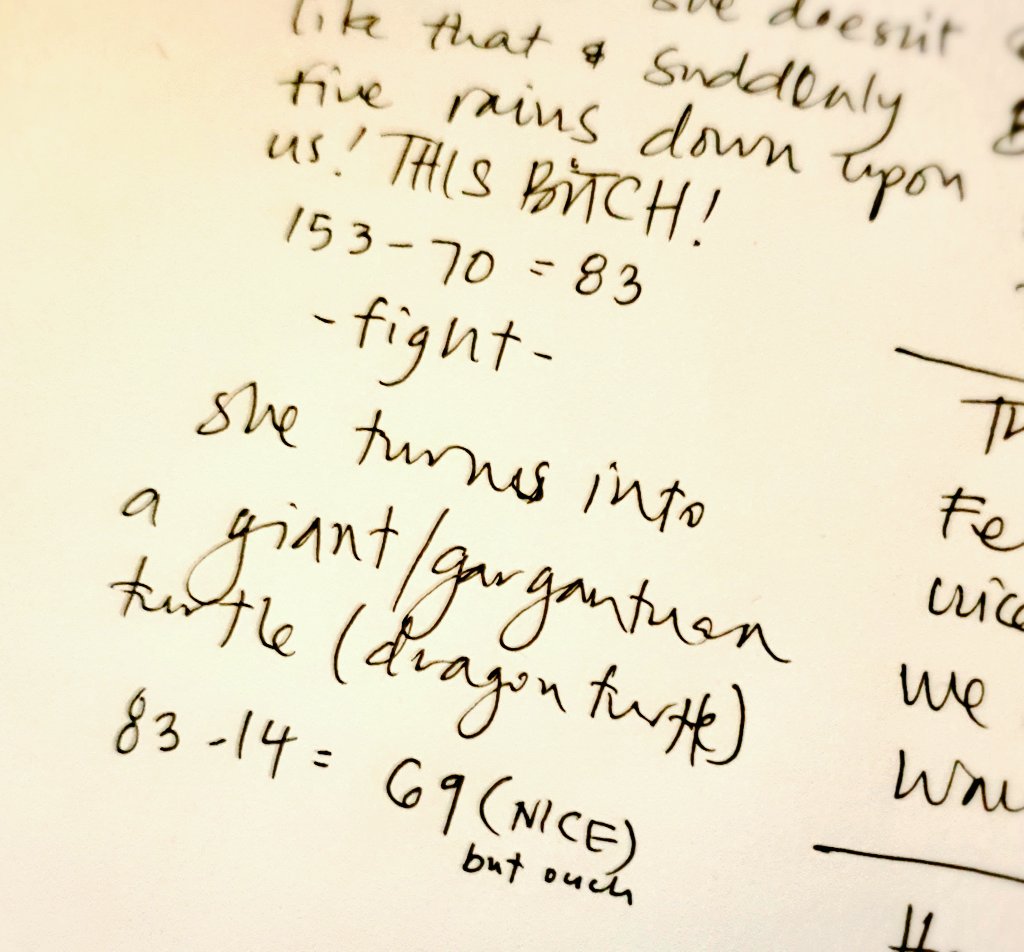 she doesn't
like that & suddenly
fire rains down upon
us! THIS BITCH!
153-70 = 83
-fight-
she turns into
a giant/gargantuan
turtle (dragon turtle)
83-14= 69 (NICE)
but ouch
Th
Fe
we